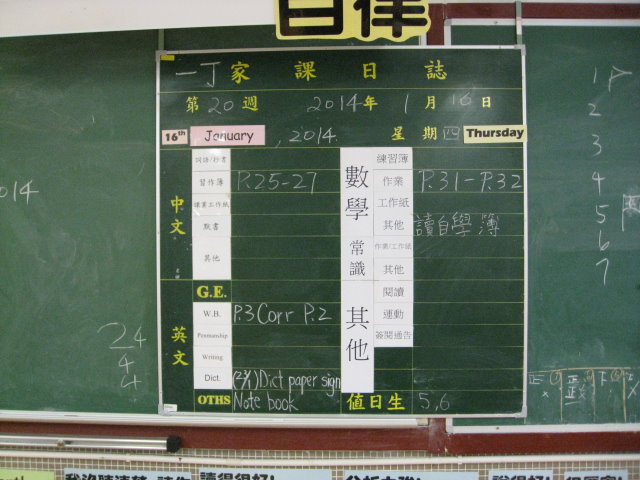 自律
一丁家課日誌
第20週 2014年1月16日
16th January, 2014. 星期四 Thursday
中文
習作簿 P.25-27
其他
G.E.
英文
W.B. P.3 Corr P.2
Penmanship
Writing
Dict. Dict paper sign
OTHS Note book
數學
練習簿
作業 P.31-P.32
工作紙
其他 讀自學簿
常識
作業/工作紙
其他
其他
閱讀
運動
簽閱通告
值日生 5,6
014
24
4
4
1
2
3
4
5
6
7